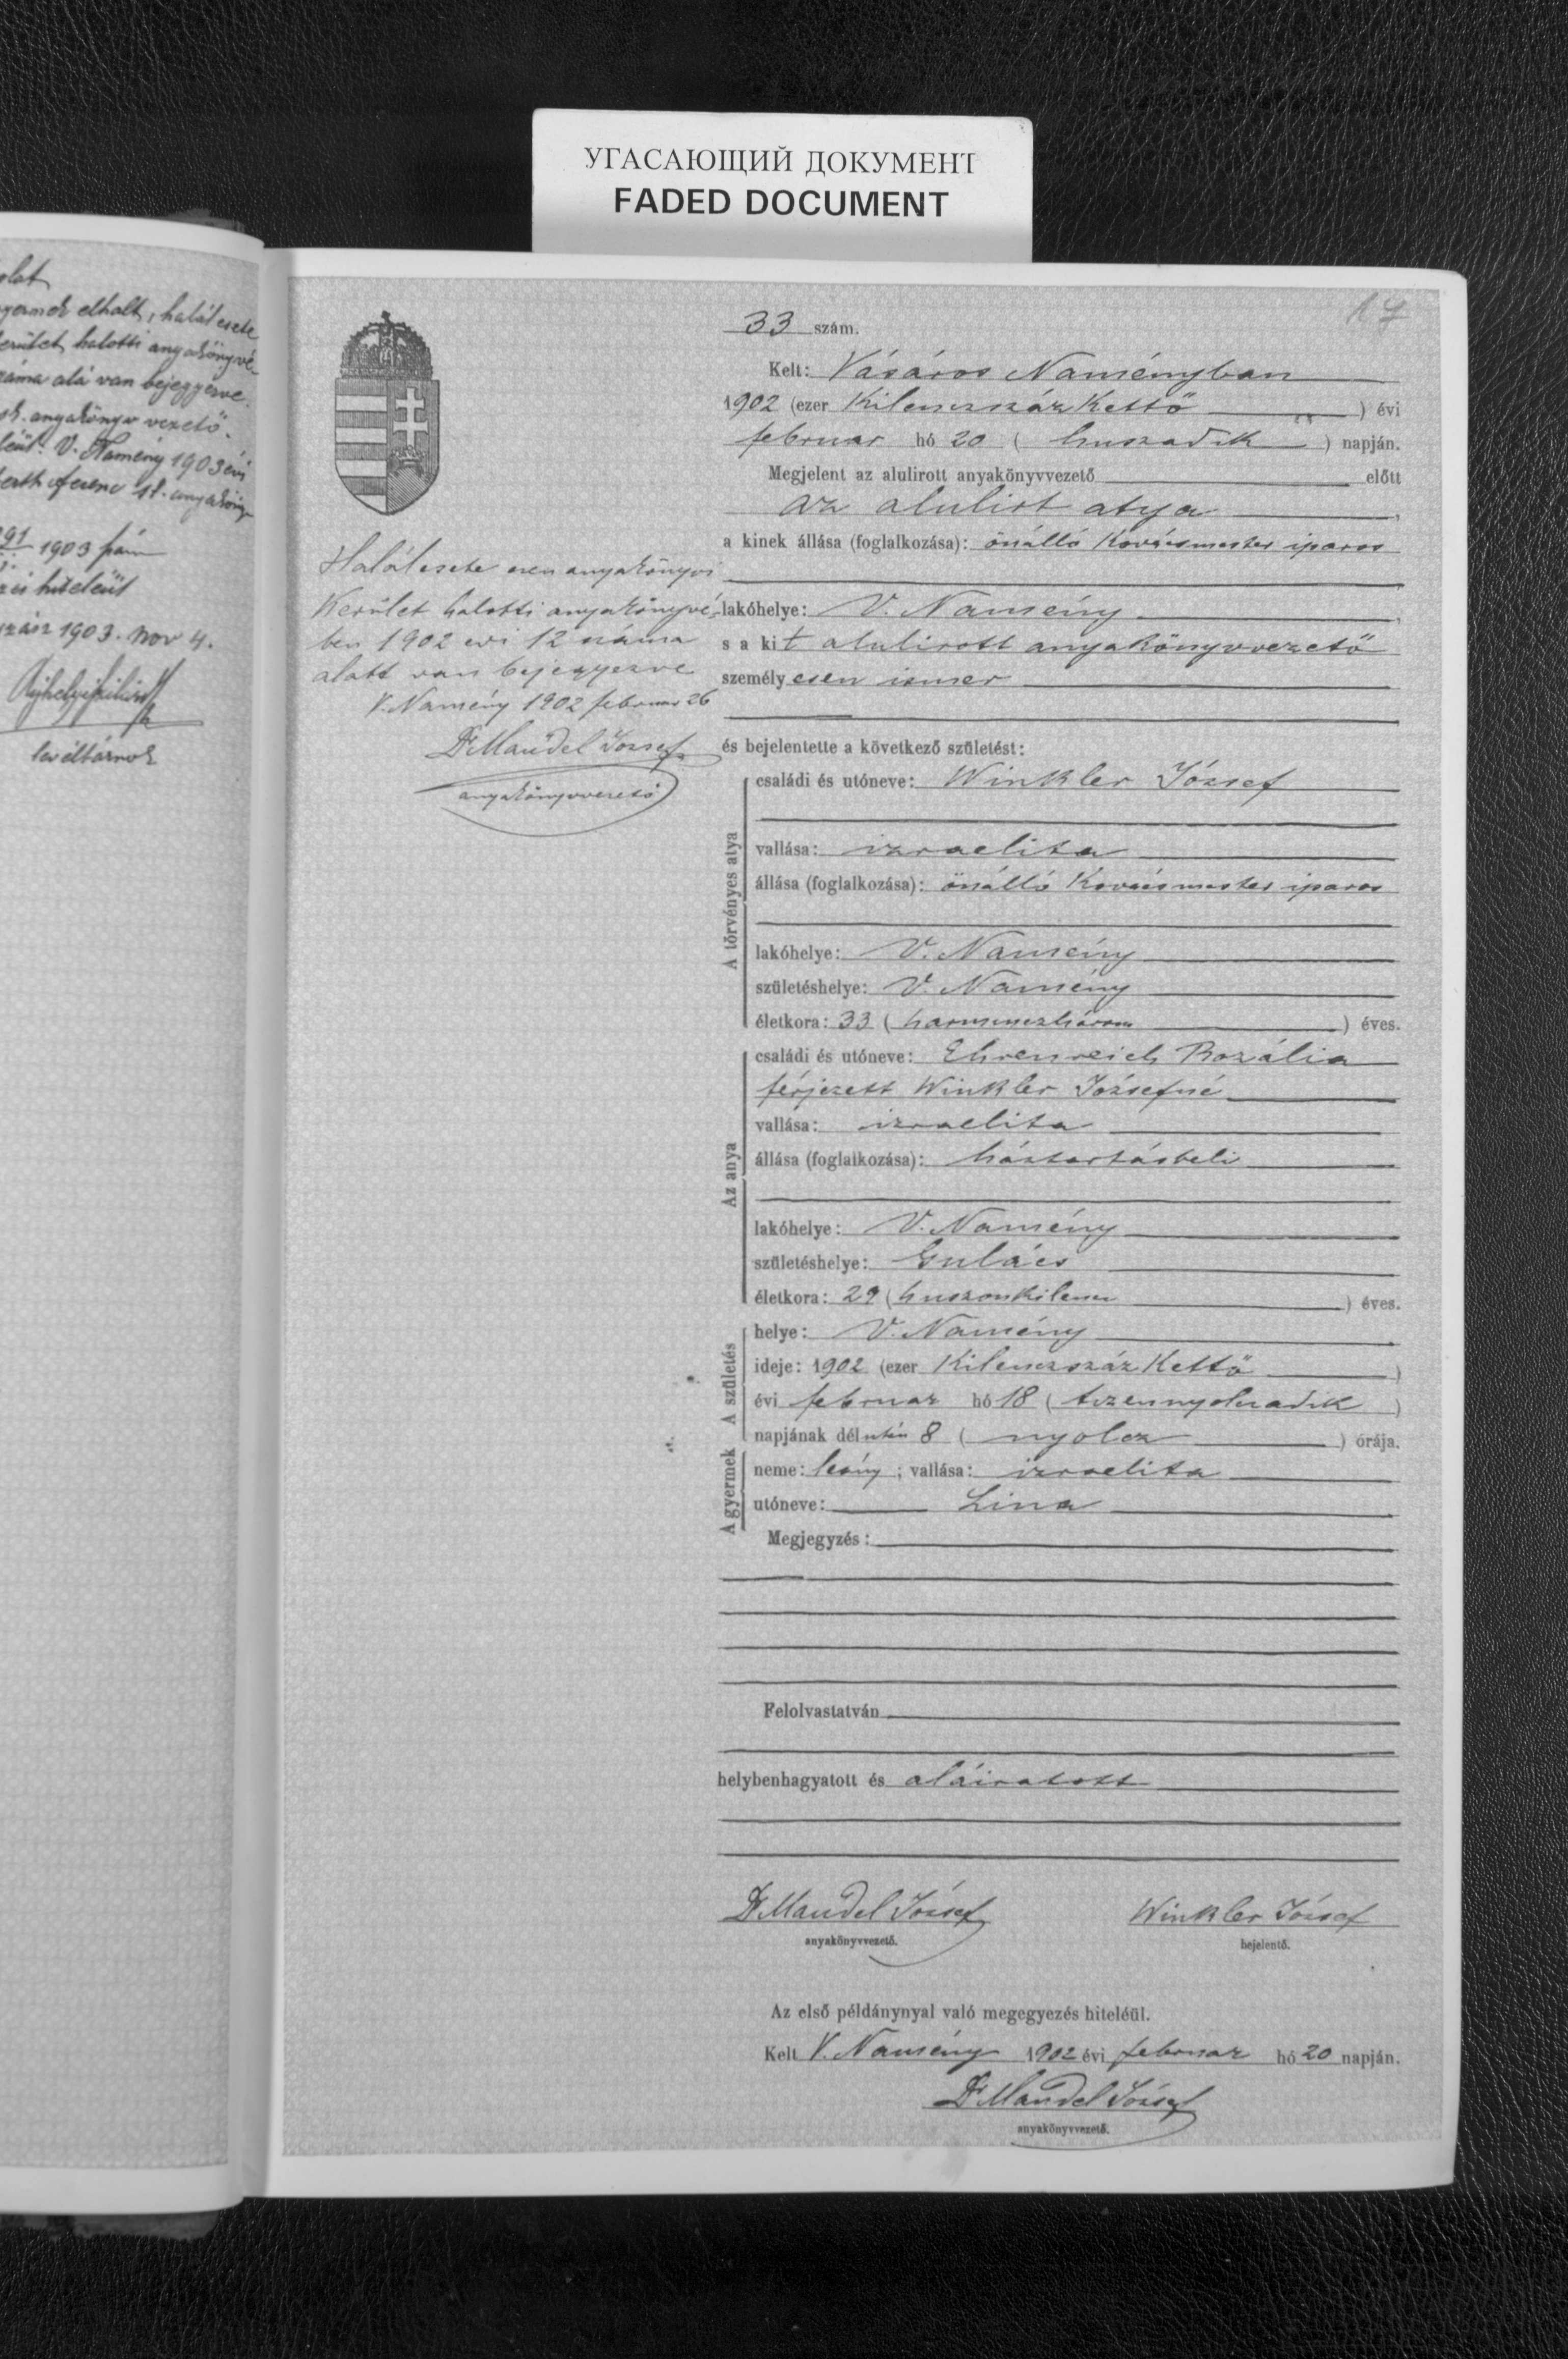 УГАСАЮЩИЙ ДОКУМЕНТ
FADED DOCUMENT
olat
gyermek elhalt, halálesete
erület halotti anyakönyvé-
záma alá van bejegyezve.
anyakönyv vezető.
V. Namény 1903 évi
ferenc st. anyakönyv
91 1903 szám
hiteléül
1903. Nov 4.
levéltárnok
17
33 szám.
Kelt: Vásáros Naményban
1902 (ezer Kilenczszáz Kettő ) évi
februar hó 20 ( huszadik ) napján.
Megjelent az alulirott anyakönyvvezető előtt
az alulirt atya ,
a kinek állása (foglalkozása): önálló Kovácsmester iparos
lakóhelye: V. Namény ,
s a kit alulirott anyakönyvvezető
személyesen ismer
Halálesete ezen anyakönyvi
Kerület halotti anyakönyvé-
ben 1902 evi 12 száma
alatt van bejegyezve
V. Namény 1902 februar 26
Dr Mandel József
anyakönyvvezető
és bejelentette a következő születést:
A törvényes atya
családi és utóneve: Winkler József
vallása: izraelita
állása (foglalkozása): önálló Kovácsmester iparos
lakóhelye: V. Namény
születéshelye: V. Namény
életkora: 33 ( harminczhárom ) éves.
Az anya
családi és utóneve: Ehrenreich Rozália
férjezett Winkler Józsefné
vallása: izraelita
állása (foglalkozása): háztartásbeli
lakóhelye: V. Namény
születéshelye: Gulács
életkora: 29 ( huszonkilencz ) éves.
A születés
helye: V. Namény
ideje: 1902 (ezer Kilenczszáz Kettő )
évi februar hó 18 ( tizennyolczadik )
napjának délután 8 ( nyolcz ) órája.
A gyermek
neme: leány ; vallása: izraelita
utóneve: Lina
Megjegyzés:
Felolvastatván
helybenhagyatott és aláiratott
Dr Mandel József Winkler József
anyakönyvvezető. bejelentő.
Az első példánynyal való megegyezés hiteléül.
Kelt V. Namény 1902 évi februar hó 20 napján.
Dr Mandel József
anyakönyvvezető.